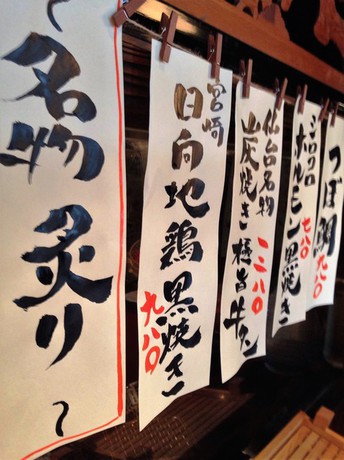 〜名物 炙り〜
宮崎
日向地鶏黒焼き
九八〇
仙台名物
炭焼き極旨牛タン
一二八〇
シロコロ
ホルモン黒焼き
七八〇
つぼ鯛
九八〇